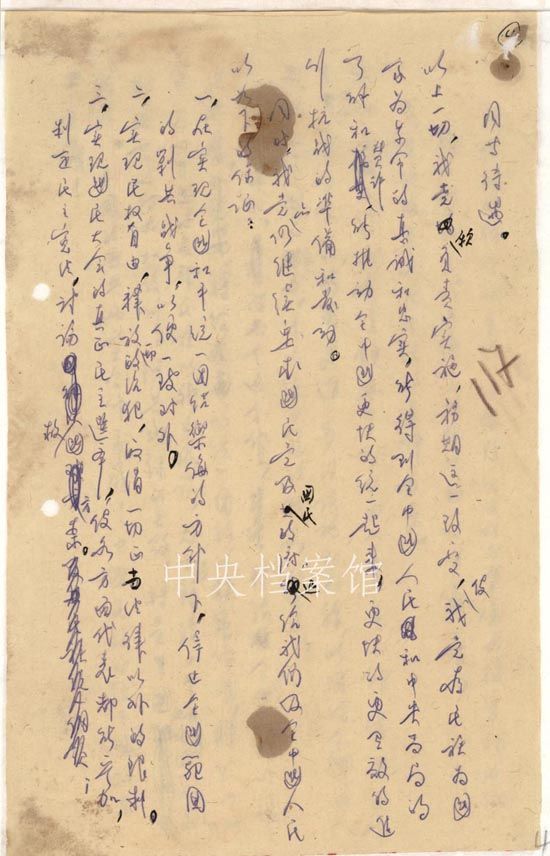 同等待遇。
以上一切，我党愿负责实施，务期这一改变，使我党为民族为国
家为革命的真诚和忠实，能得到全中国人民和中央当局的
了解和赞许，能推动全中国更快的统一起来，更快的更有效的进
行抗战的准备和发动。
同时，我党仍继续要求国民党及国民政府给我们及全中国人民
以以下的保证：
一、在实现全国和平统一团结御侮的方针下，停止全国范围
的剿共战争，以便一致对外。
二、实现民权自由，释放政治犯，取消一切法律以外的限制。
三、实现国民大会的真正民主选举，使各方面代表都能参加，
制定民主宪法，讨论救国方案。
117
4
中央档案馆